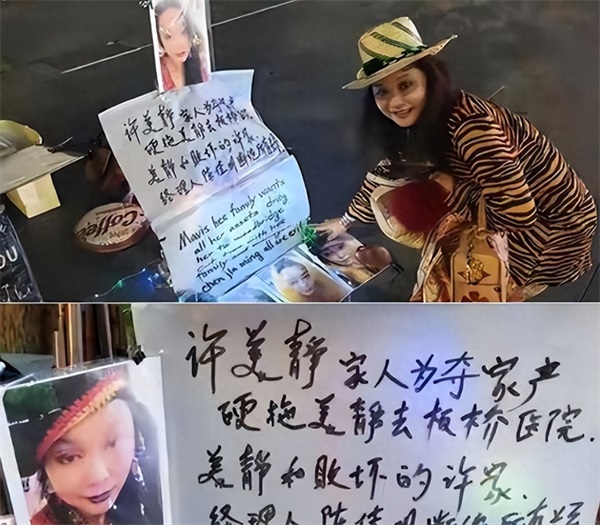 许美静家人为夺家产
硬拖美静去板桥医院
美静和败坏的许家.
经理人陈佳明断绝所有
Mavis hee family wants
all her assets drag
her to woodbridge
family with Hee
chen jia ming all are evil
Coffee
YOU
许美静家人为夺家产
硬拖美静去板桥医院.
美静和败坏的许家.
经理人陈佳明断绝